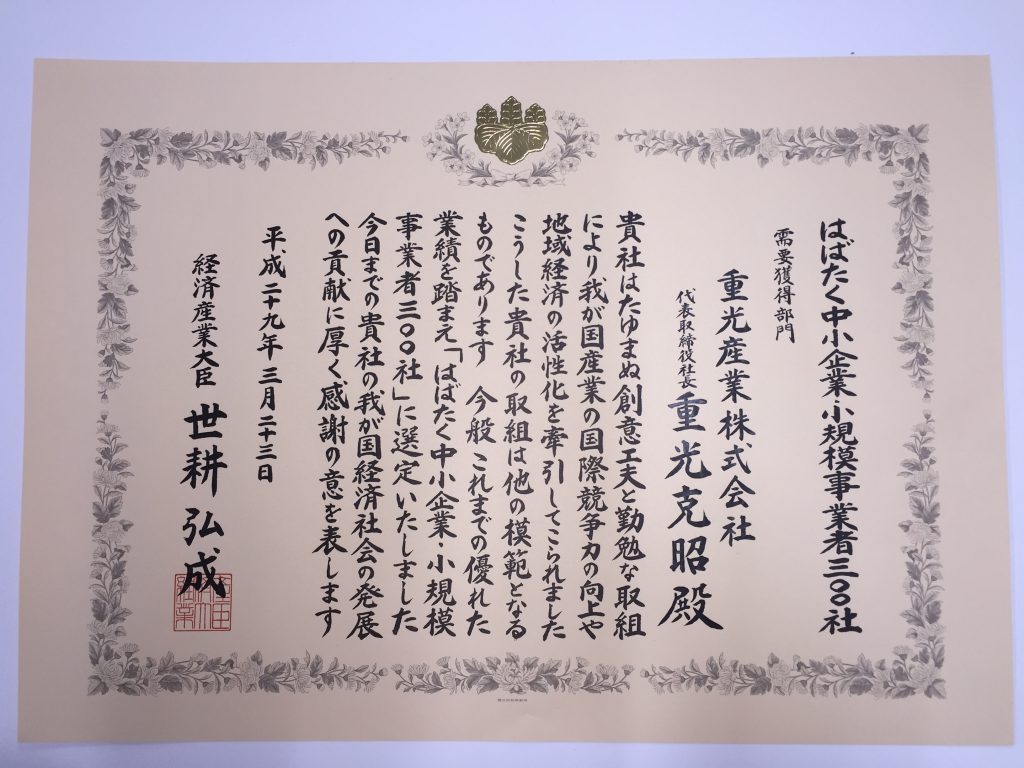 はばたく中小企業・小規模事業者三〇〇社
需要獲得部門
重光産業株式会社
代表取締役社長 重光克昭殿
貴社はたゆまぬ創意工夫と勤勉な取組
により我が国産業の国際競争力の向上や
地域経済の活性化を牽引してこられました
こうした貴社の取組は他の模範となる
ものであります 今般 これまでの優れた
業績を踏まえ「はばたく中小企業・小規模
事業者三〇〇社」に選定いたしました
今日までの貴社の我が国経済社会の発展
への貢献に厚く感謝の意を表します
平成二十九年三月二十三日
経済産業大臣 世耕弘成